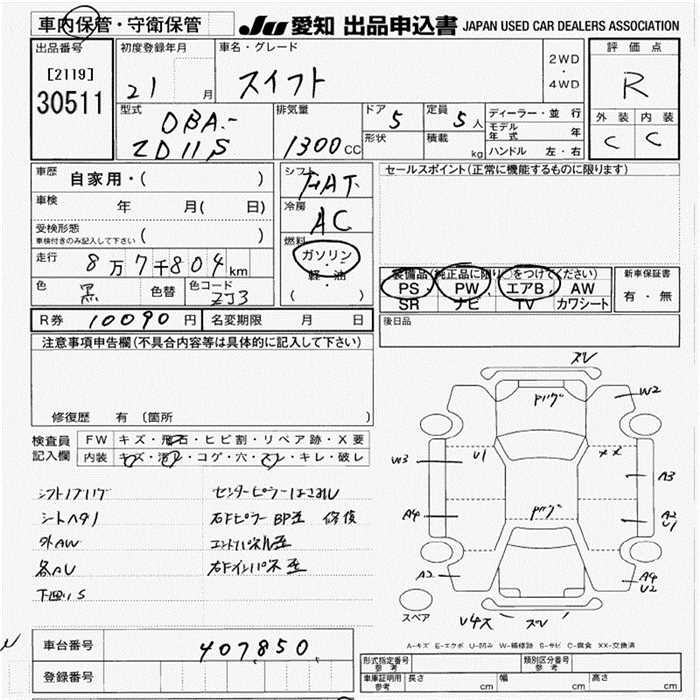 車内保管・守衛保管
JU 愛知 出品申込書 JAPAN USED CAR DEALERS ASSOCIATION
出品番号
[2119]
30511
初度登録年月
21 月
車名・グレード
スイフト
2WD
・
4WD
評価点
R
外装 内装
C C
型式
DBA-
ZD11S
排気量
1300CC
ドア
5
定員
5人
形状
積載
kg
ディーラー・並行
モデル年式 年
ハンドル 左・右
車歴
自家用・( )
車検
年 月( 日)
受検形態
車検付きのみ記入して下さい ( )
走行
8万7千804km
色
黒
色替
色コード
ZJ3
シフト
FAT
冷房
AC
燃料
ガソリン
・
軽・油
( )
セールスポイント(正常に機能するものに限ります)
装備品(純正品に限り○をつけてください)
PS・PW・エアB・AW
SR ナビ TV カワシート
新車保証書
有・無
後日品
R券 10090円
名変期限 月 日
注意事項申告欄(不具合内容等は具体的に記入して下さい)
修復歴 有 (箇所
検査員
記入欄
FW キズ・飛石・ヒビ割・リペア跡・X要
内装 キズ・汚レ・コゲ・穴・スレ・キレ・破レ
シートヘタリ
外AW
各AU
下廻りS
エンドパネル歪
右Fインパネ歪
スレ
W2
W3
U1
××
A3
A4
A2
U1
A2
A4
U2
スペア
スレ
A-キズ E-エクボ U-凹み W-補修跡 S-サビ C-腐食 XX-交換済
車台番号
407850
登録番号
形式指定番号
参考
類別区分番号
参考
車庫証明用
参考
長さ cm
幅 cm
高さ cm